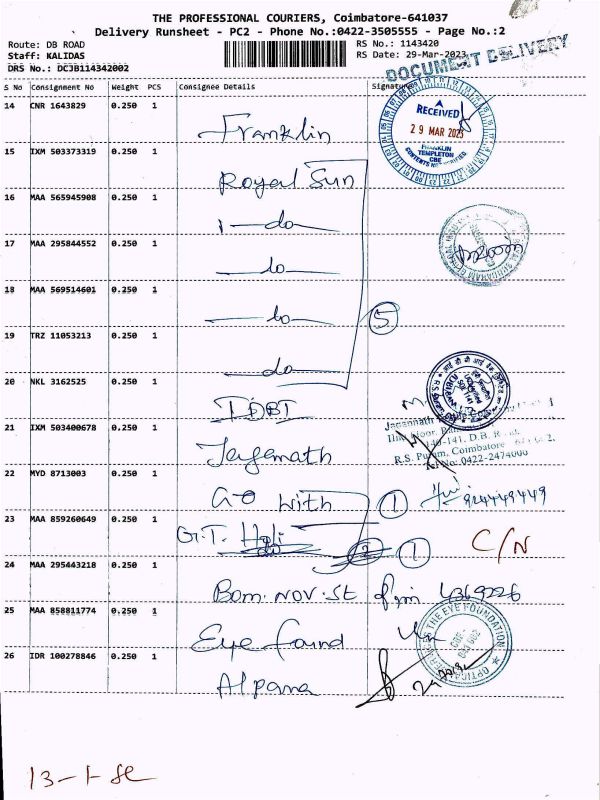 THE PROFESSIONAL COURIERS, Coimbatore-641037
Delivery Runsheet - PC2 - Phone No.:0422-3505555 - Page No.:2
Route: DB ROAD
Staff: KALIDAS
DRS No.: DC3B114342002
RS No.: 1143420
RS Date: 29-Mar-2023
DOCUMENT DELIVERY
S No Consignment No Weight PCS Consignee Details Signature
14 CNR 1643829 0.250 1
Franklin
RECEIVED
29 MAR 2023
FRANKLIN
TEMPLETON
CBE
CONTENTS NOT VERIFIED
15 IXM 503373319 0.250 1
Royal Sun
16 MAA 565945908 0.250 1
do
17 MAA 295844552 0.250 1
do
18 MAA 569514601 0.250 1
do
5
19 TRZ 11053213 0.250 1
do
20 NKL 3162525 0.250 1
IDBI
21 IXM 503400678 0.250 1
Jagannath
D.B. R
R.S. Puram, Coimbatore
No: 0422-2474000
22 MYD 8713003 0.250 1
GO With 1
23 MAA 859260649 0.250 1
G.T. Holi 1
C/N
24 MAA 295443218 0.250 1
Bom. Nov. St
25 MAA 858811774 0.250 1
Eye found
THE EYE FOUNDATION
26 IDR 100278846 0.250 1
Alpana